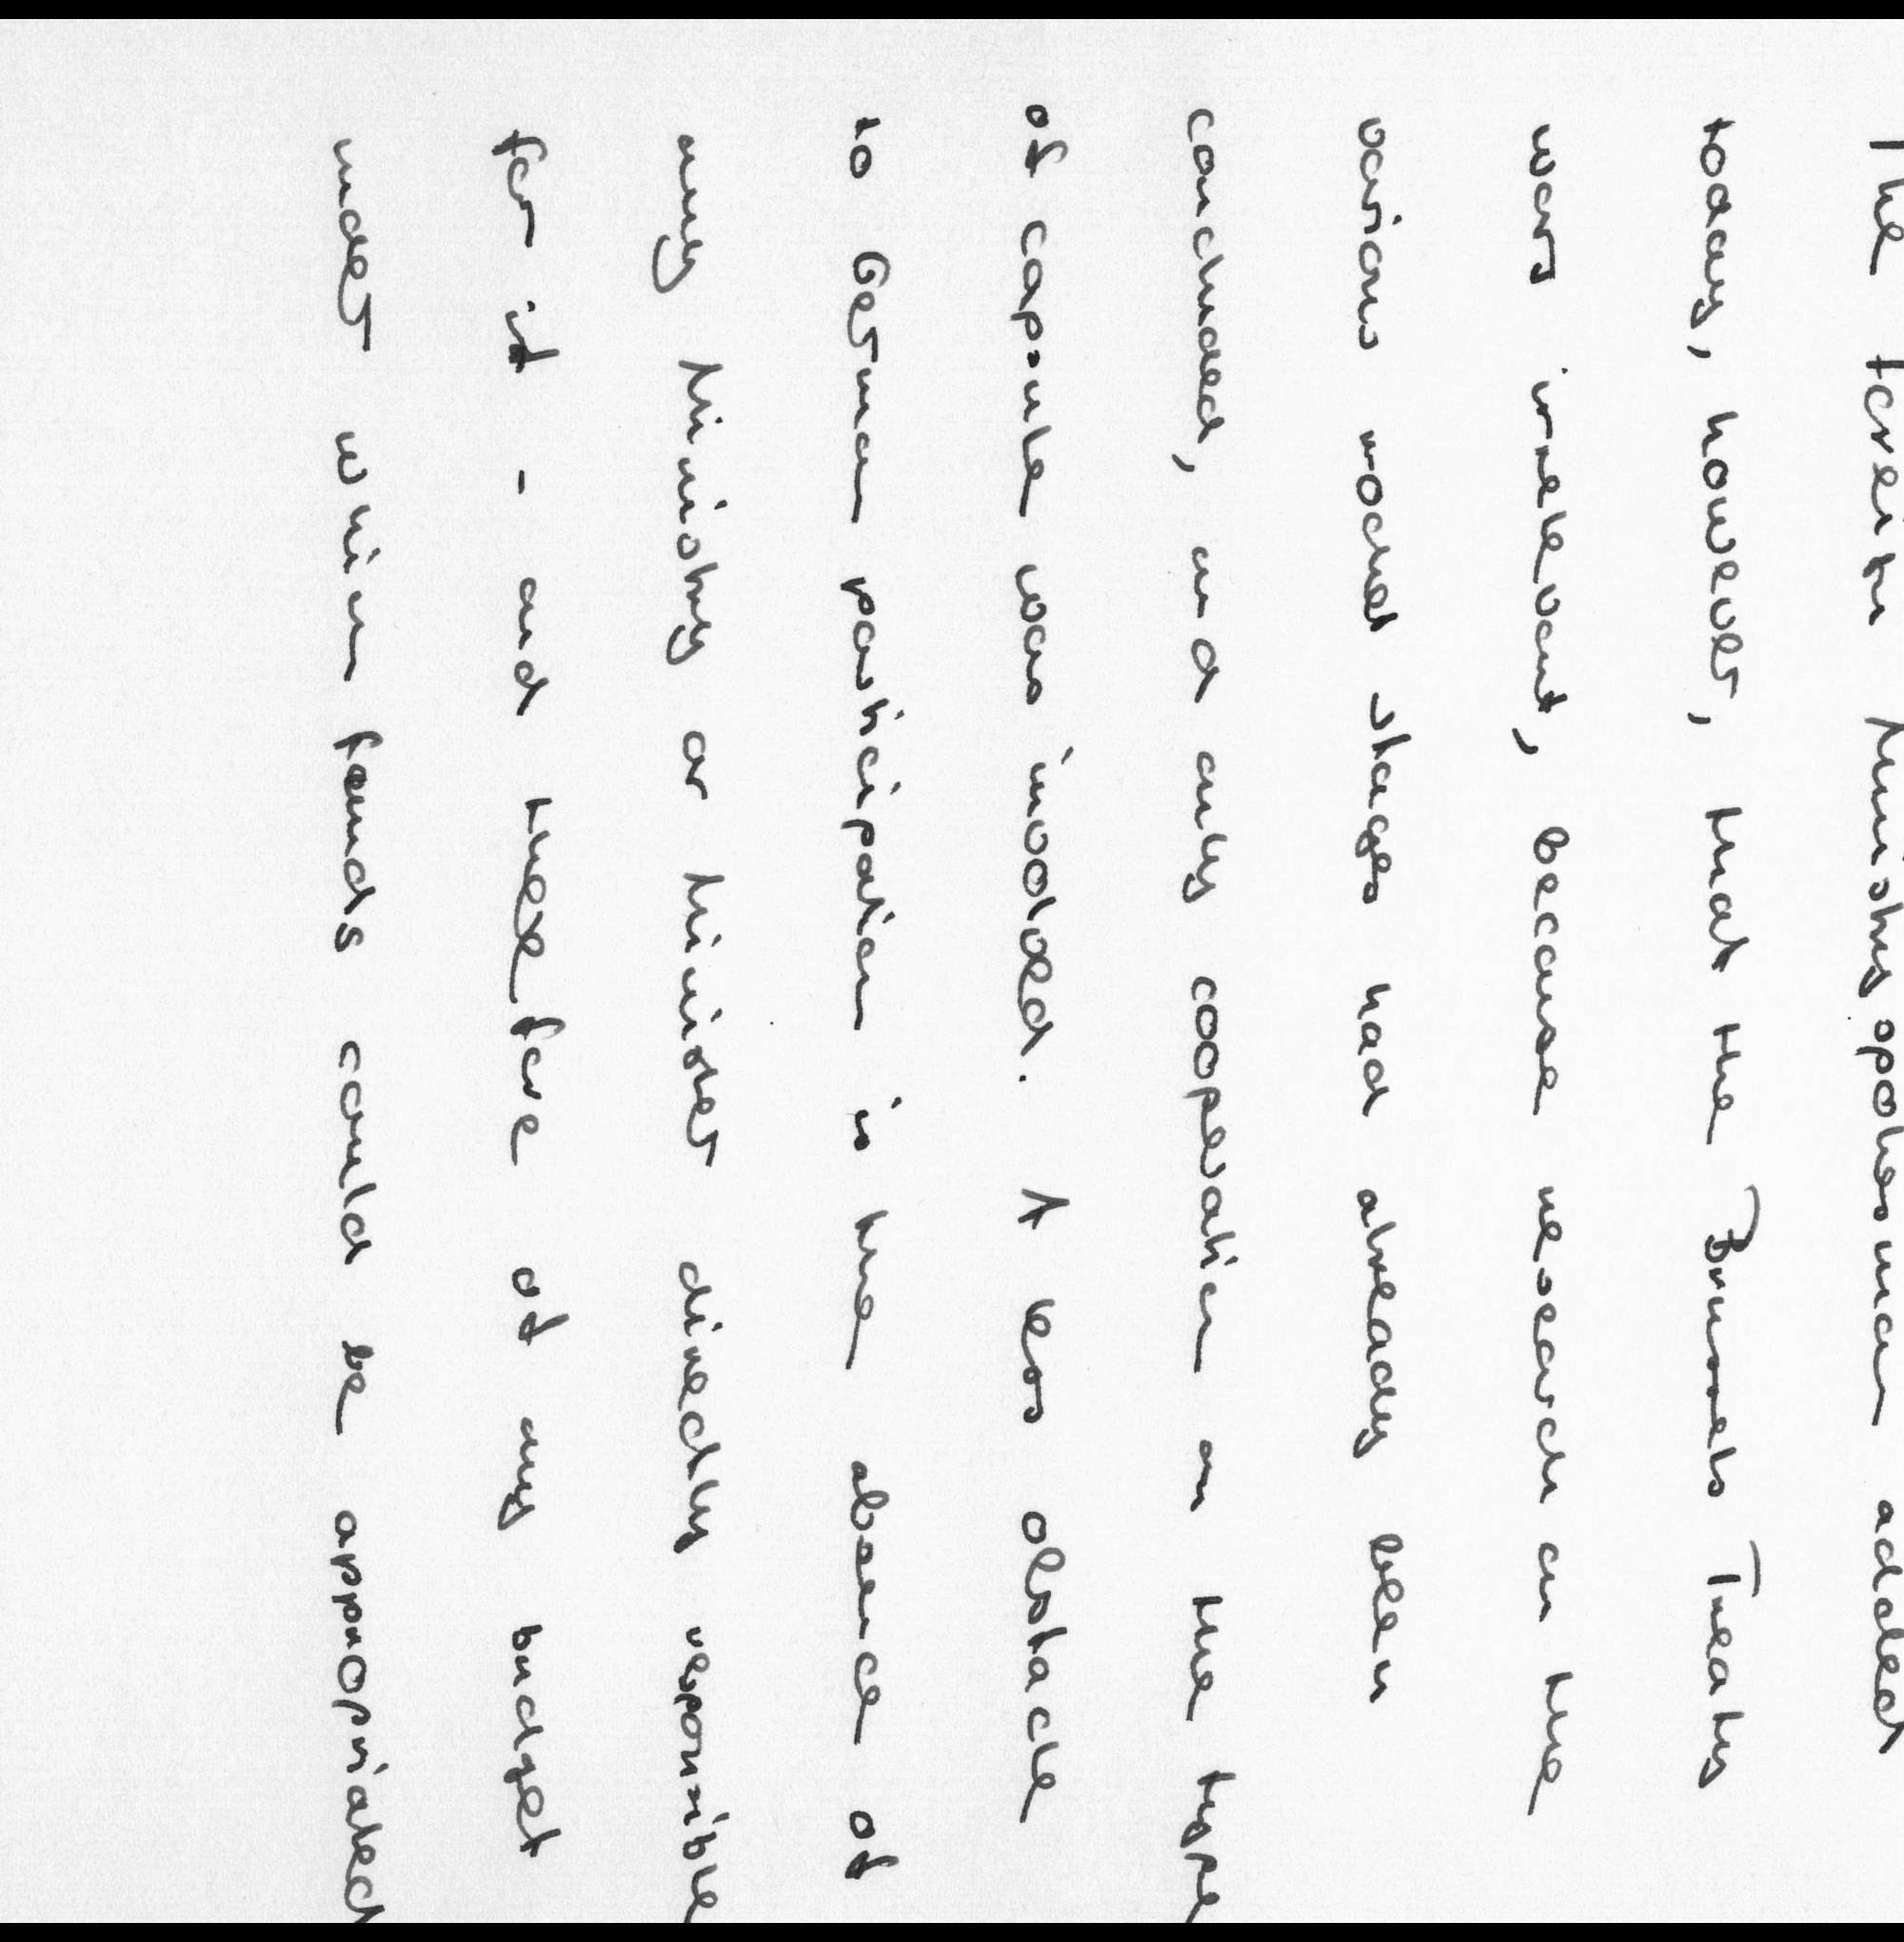 The Foreign Ministry spokesman added
today, however, that the Brussels Treaty
was irrelevant, because research on the
various rocket stages had already been
concluded, and only cooperation on the type
of capsule was involved. A less obstacle
to German participation is the absence of
any Ministry or Minister directly responsible
for it - and therefore of any budget
under which funds could be appropriated